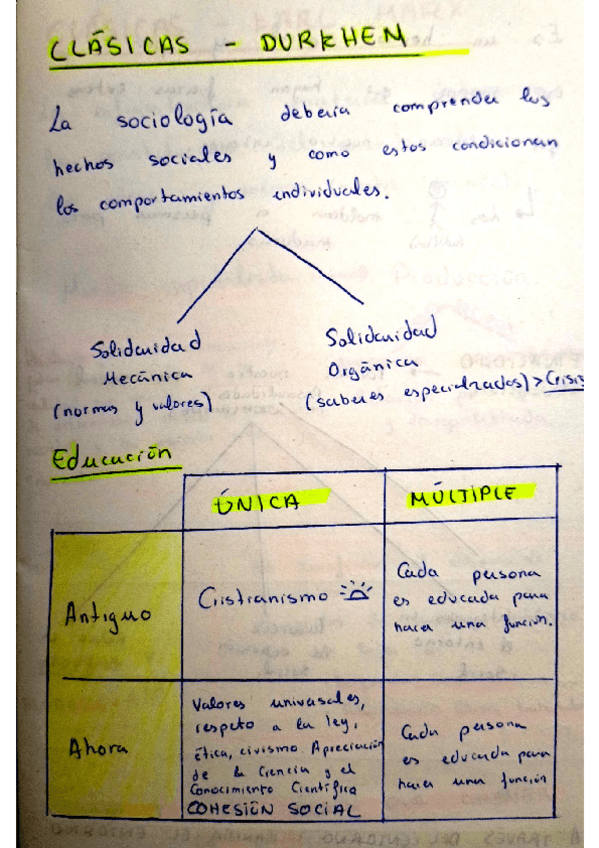 CLÁSICAS - DURKHEM
La sociología debería comprender los
hechos sociales y como estos condicionan
los comportamientos individuales.
Solidaridad
Mecánica
(normas y valores)
Solidaridad
Orgánica
(saberes especializados) > Crisis
Educación
ÚNICA
MÚLTIPLE
Antiguo
Cristianismo
Cada persona
es educada para
hacer una función.
Ahora
Valores universales,
respeto a la ley,
ética, civismo Apreciación
de la Ciencia y el
Conocimiento Científico
COHESIÓN SOCIAL
Cada persona
es educada para
hacer una función